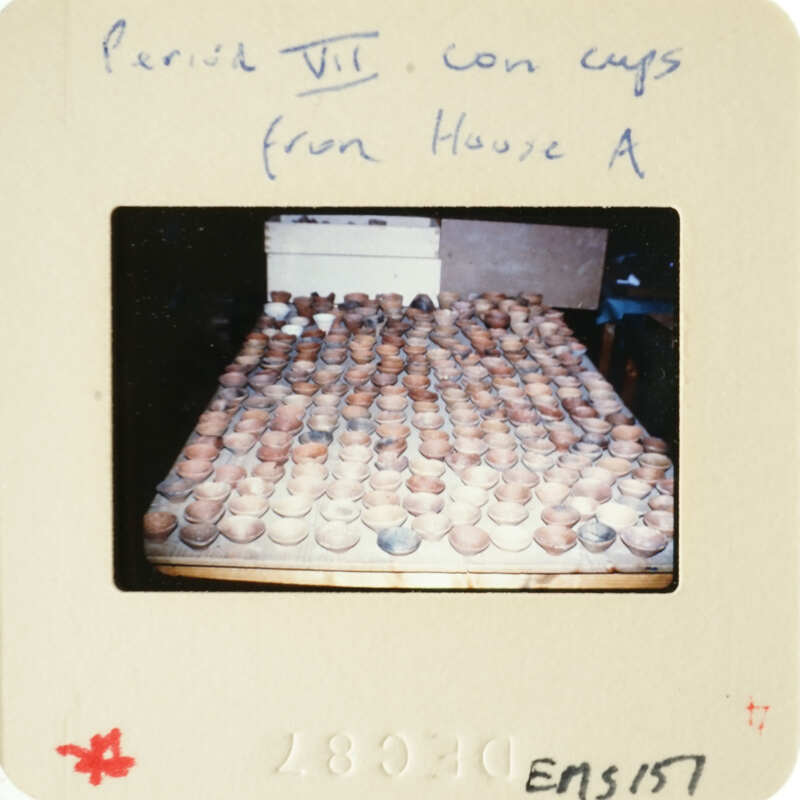 Period VII con cups
from House A
DEC87
EMS157